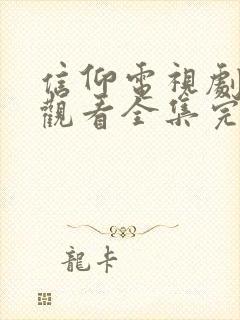 信仰電視劇
觀看全集完
龍卡